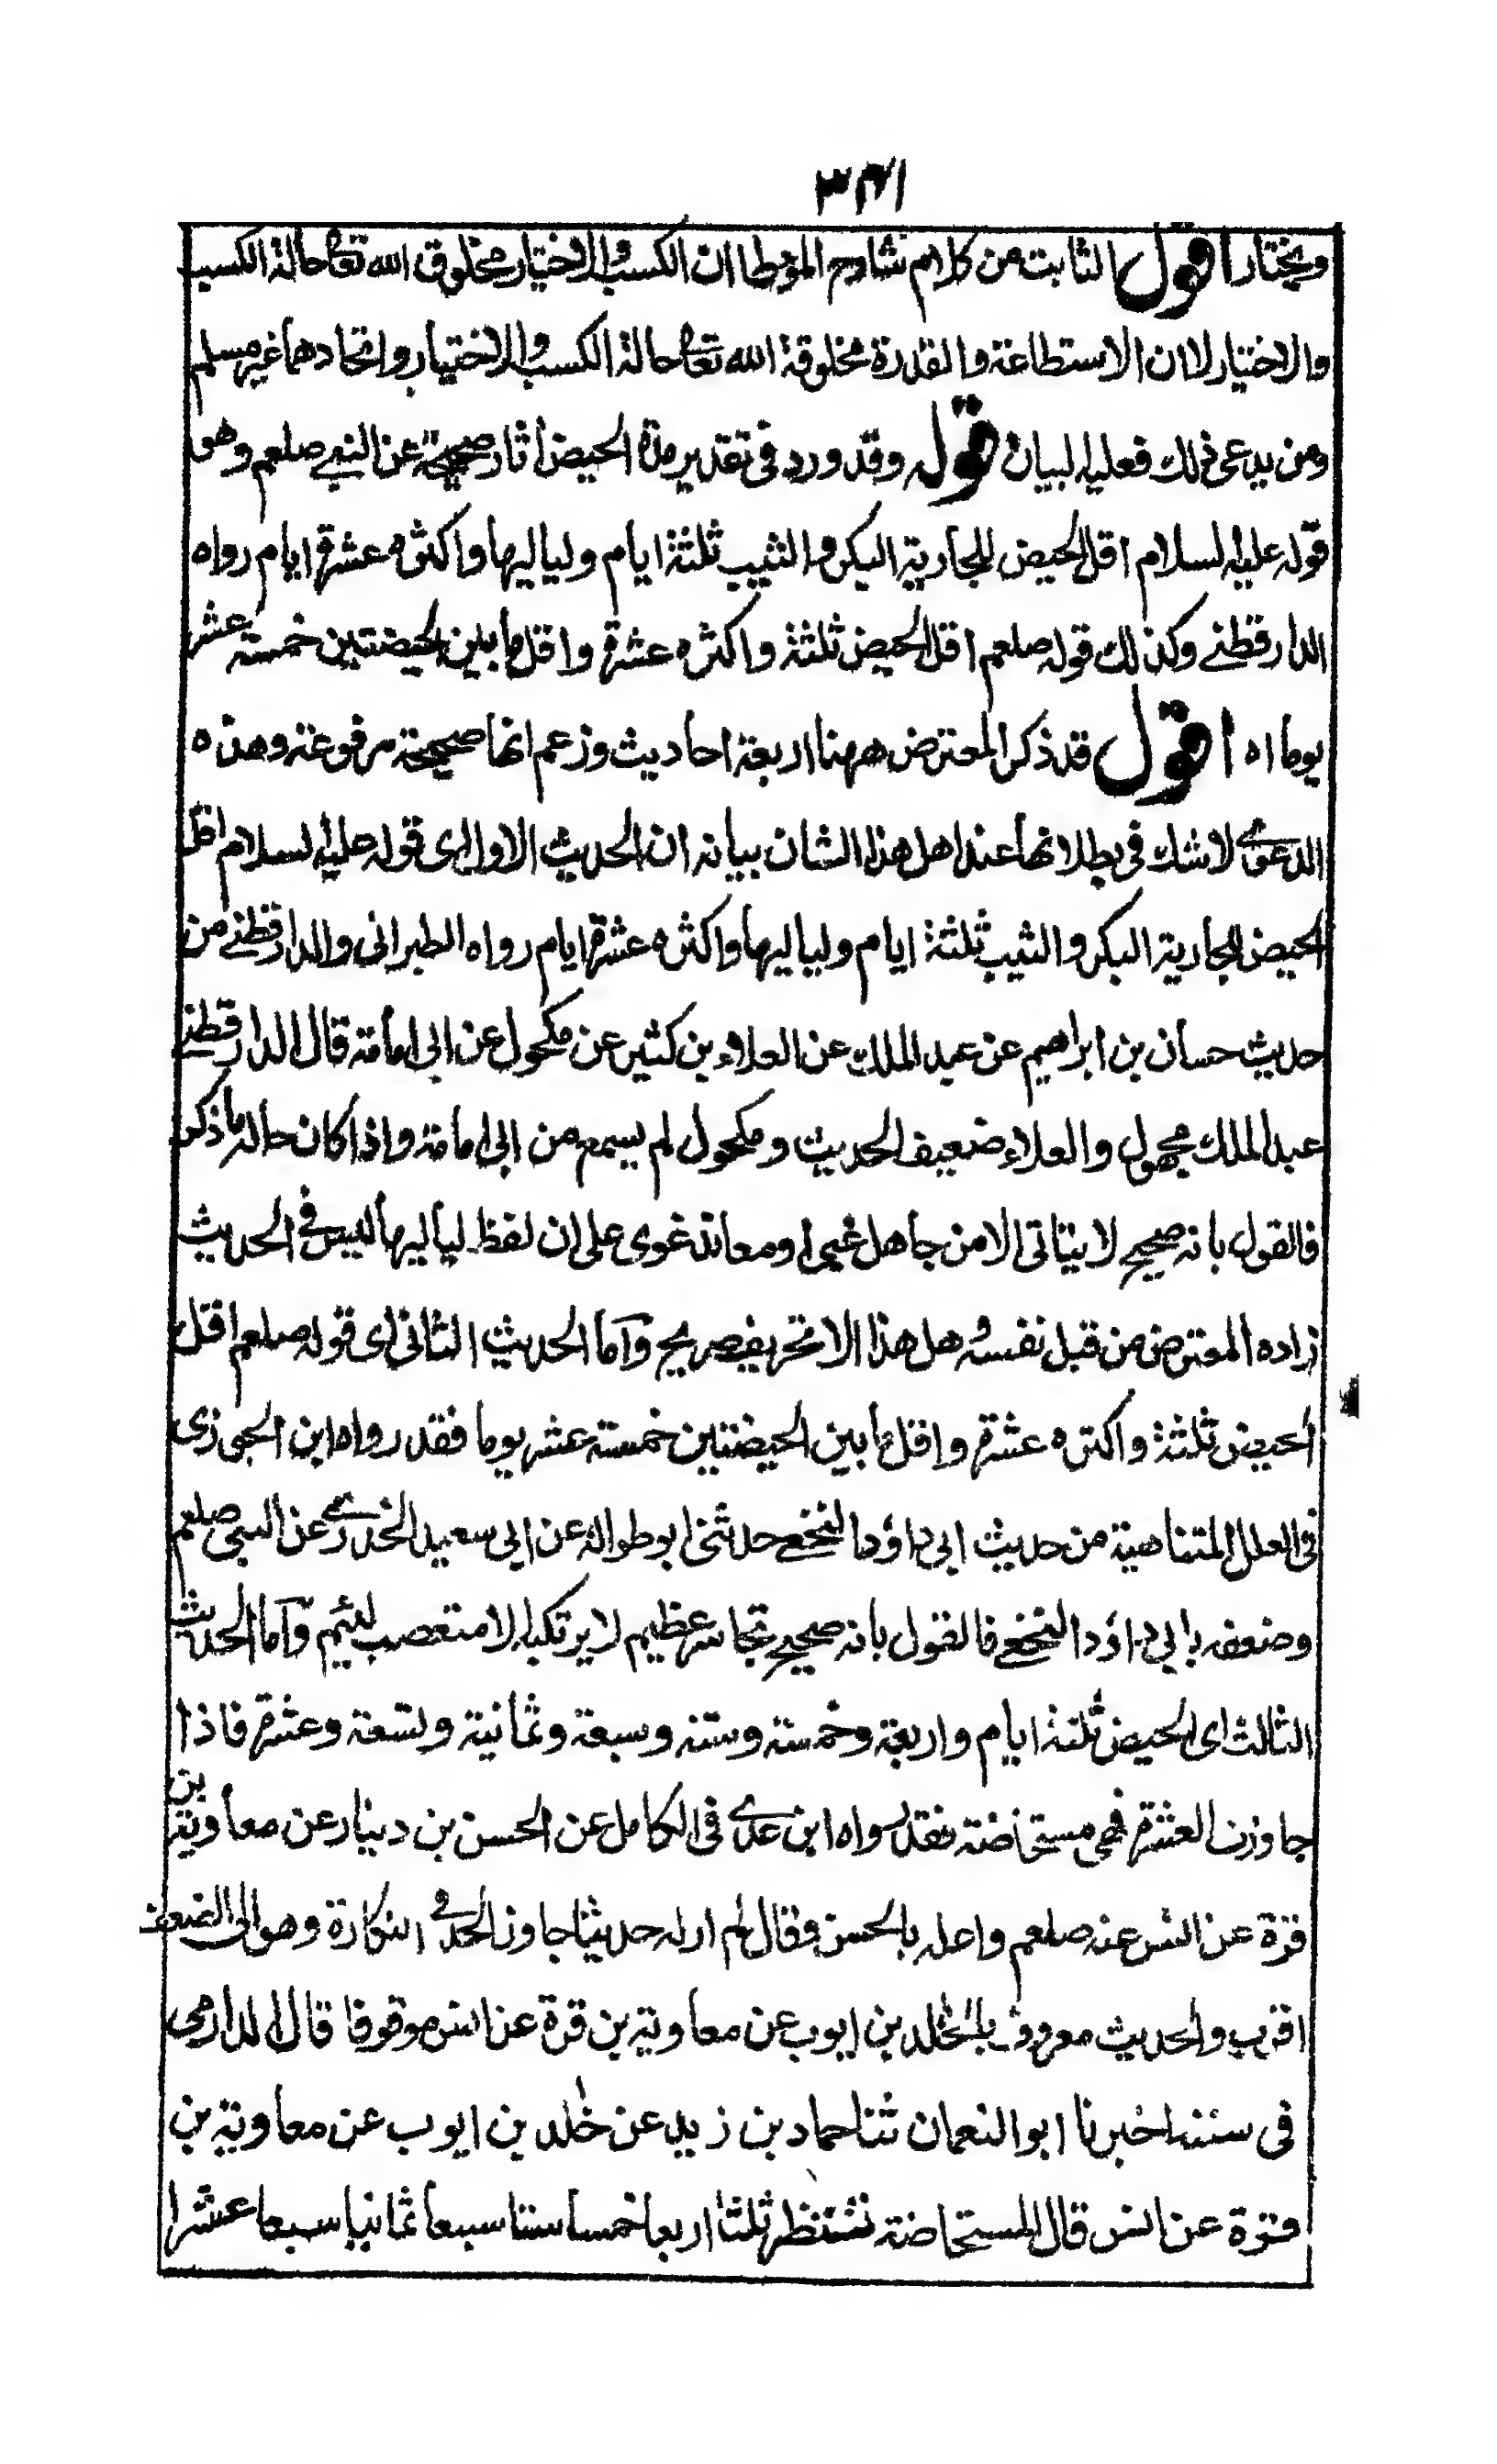 ٣٤١
ويختار اقول الثابت من كلام شارح المؤطا ان الكسب والاختيار مخلوق الله تعالى حالة الكسب
والاختيار لا ان الاستطاعة والقدرة مخلوقة الله تعالى حالة الكسب والاختيار واتحادهما غير مسلم
ومن يدعى ذلك فعليه البيان قوله وقد ورد فى تقدير مدة الحيض أثار صحيحة عن النبى صلعم وهو
قوله عليه السلام اقل الحيض للجارية البكر والثيب ثلثة ايام ولياليها واكثره عشرة ايام رواه
الدارقطنى وكذلك قوله صلعم اقل الحيض ثلثة واكثره عشرة واقل ما بين الحيضتين خمسة عشر
يوما اه اقول قد ذكر المعترض ههنا اربعة احاديث وزعم انها صحيحة مرفوعة وهذه
الدعوى لا شك فى بطلانها عند اهل هذا الشان بيانه ان الحديث الاول اى قوله عليه السلام اقل
الحيض للجارية البكر والثيب ثلثة ايام ولياليها واكثره عشرة ايام رواه الطبرانى والدارقطنى من
حديث حسان بن ابراهيم عن عبد الملك عن العلاء بن كثير عن مكحول عن ابى امامة قال الدارقطنى
عبد الملك مجهول والعلاء ضعيف الحديث ومكحول لم يسمع من ابى امامة واذا كان حاله ما ذكر
فالقول بانه صحيح لا يتاتى الا من جاهل غبى او معاند غوى على ان لفظ لياليها ليس فى الحديث
زاده المعترض من قبل نفسه و هل هذا الا تحريف صريح وآما الحديث الثانى اى قوله صلعم اقل
الحيض ثلثة واكثره عشرة واقل ما بين الحيضتين خمسة عشر يوما فقد رواه ابن الجوزى
فى العلل المتناهية من حديث ابى داؤد النخعى حدثنى ابو طوالة عن ابى سعيد الخدرى عن النبى صلعم
وضعفه بابى داؤد النخعى فالقول بانه صحيح تجاسر عظيم لا يرتكبه الا متعصب لئيم وآما الحديث
الثالث اى الحيض ثلثة ايام واربعة وخمسة وستة وسبعة وثمانية وتسعة وعشرة فاذا
جاوزت العشرة فهى مستحاضة فقد رواه ابن عدى فى الكامل عن الحسن بن دينار عن معاوية بن
قرة عن انس عنه صلعم واعله بالحسن وقال لم ار له حديثا جاوز الحد فى النكارة وهو الى الضعف
اقرب والحديث معروف بالخلد بن ايوب عن معاوية بن قرة عن انس موقوفا قال الدارمى
فى سننه اخبرنا ابو النعمان ثنا حماد بن زيد عن خلد بن ايوب عن معاوية بن
قرة عن انس قال المستحاضة تنتظر ثلثا اربعا خمسا ستا سبعا ثمانيا سبعا عشرا